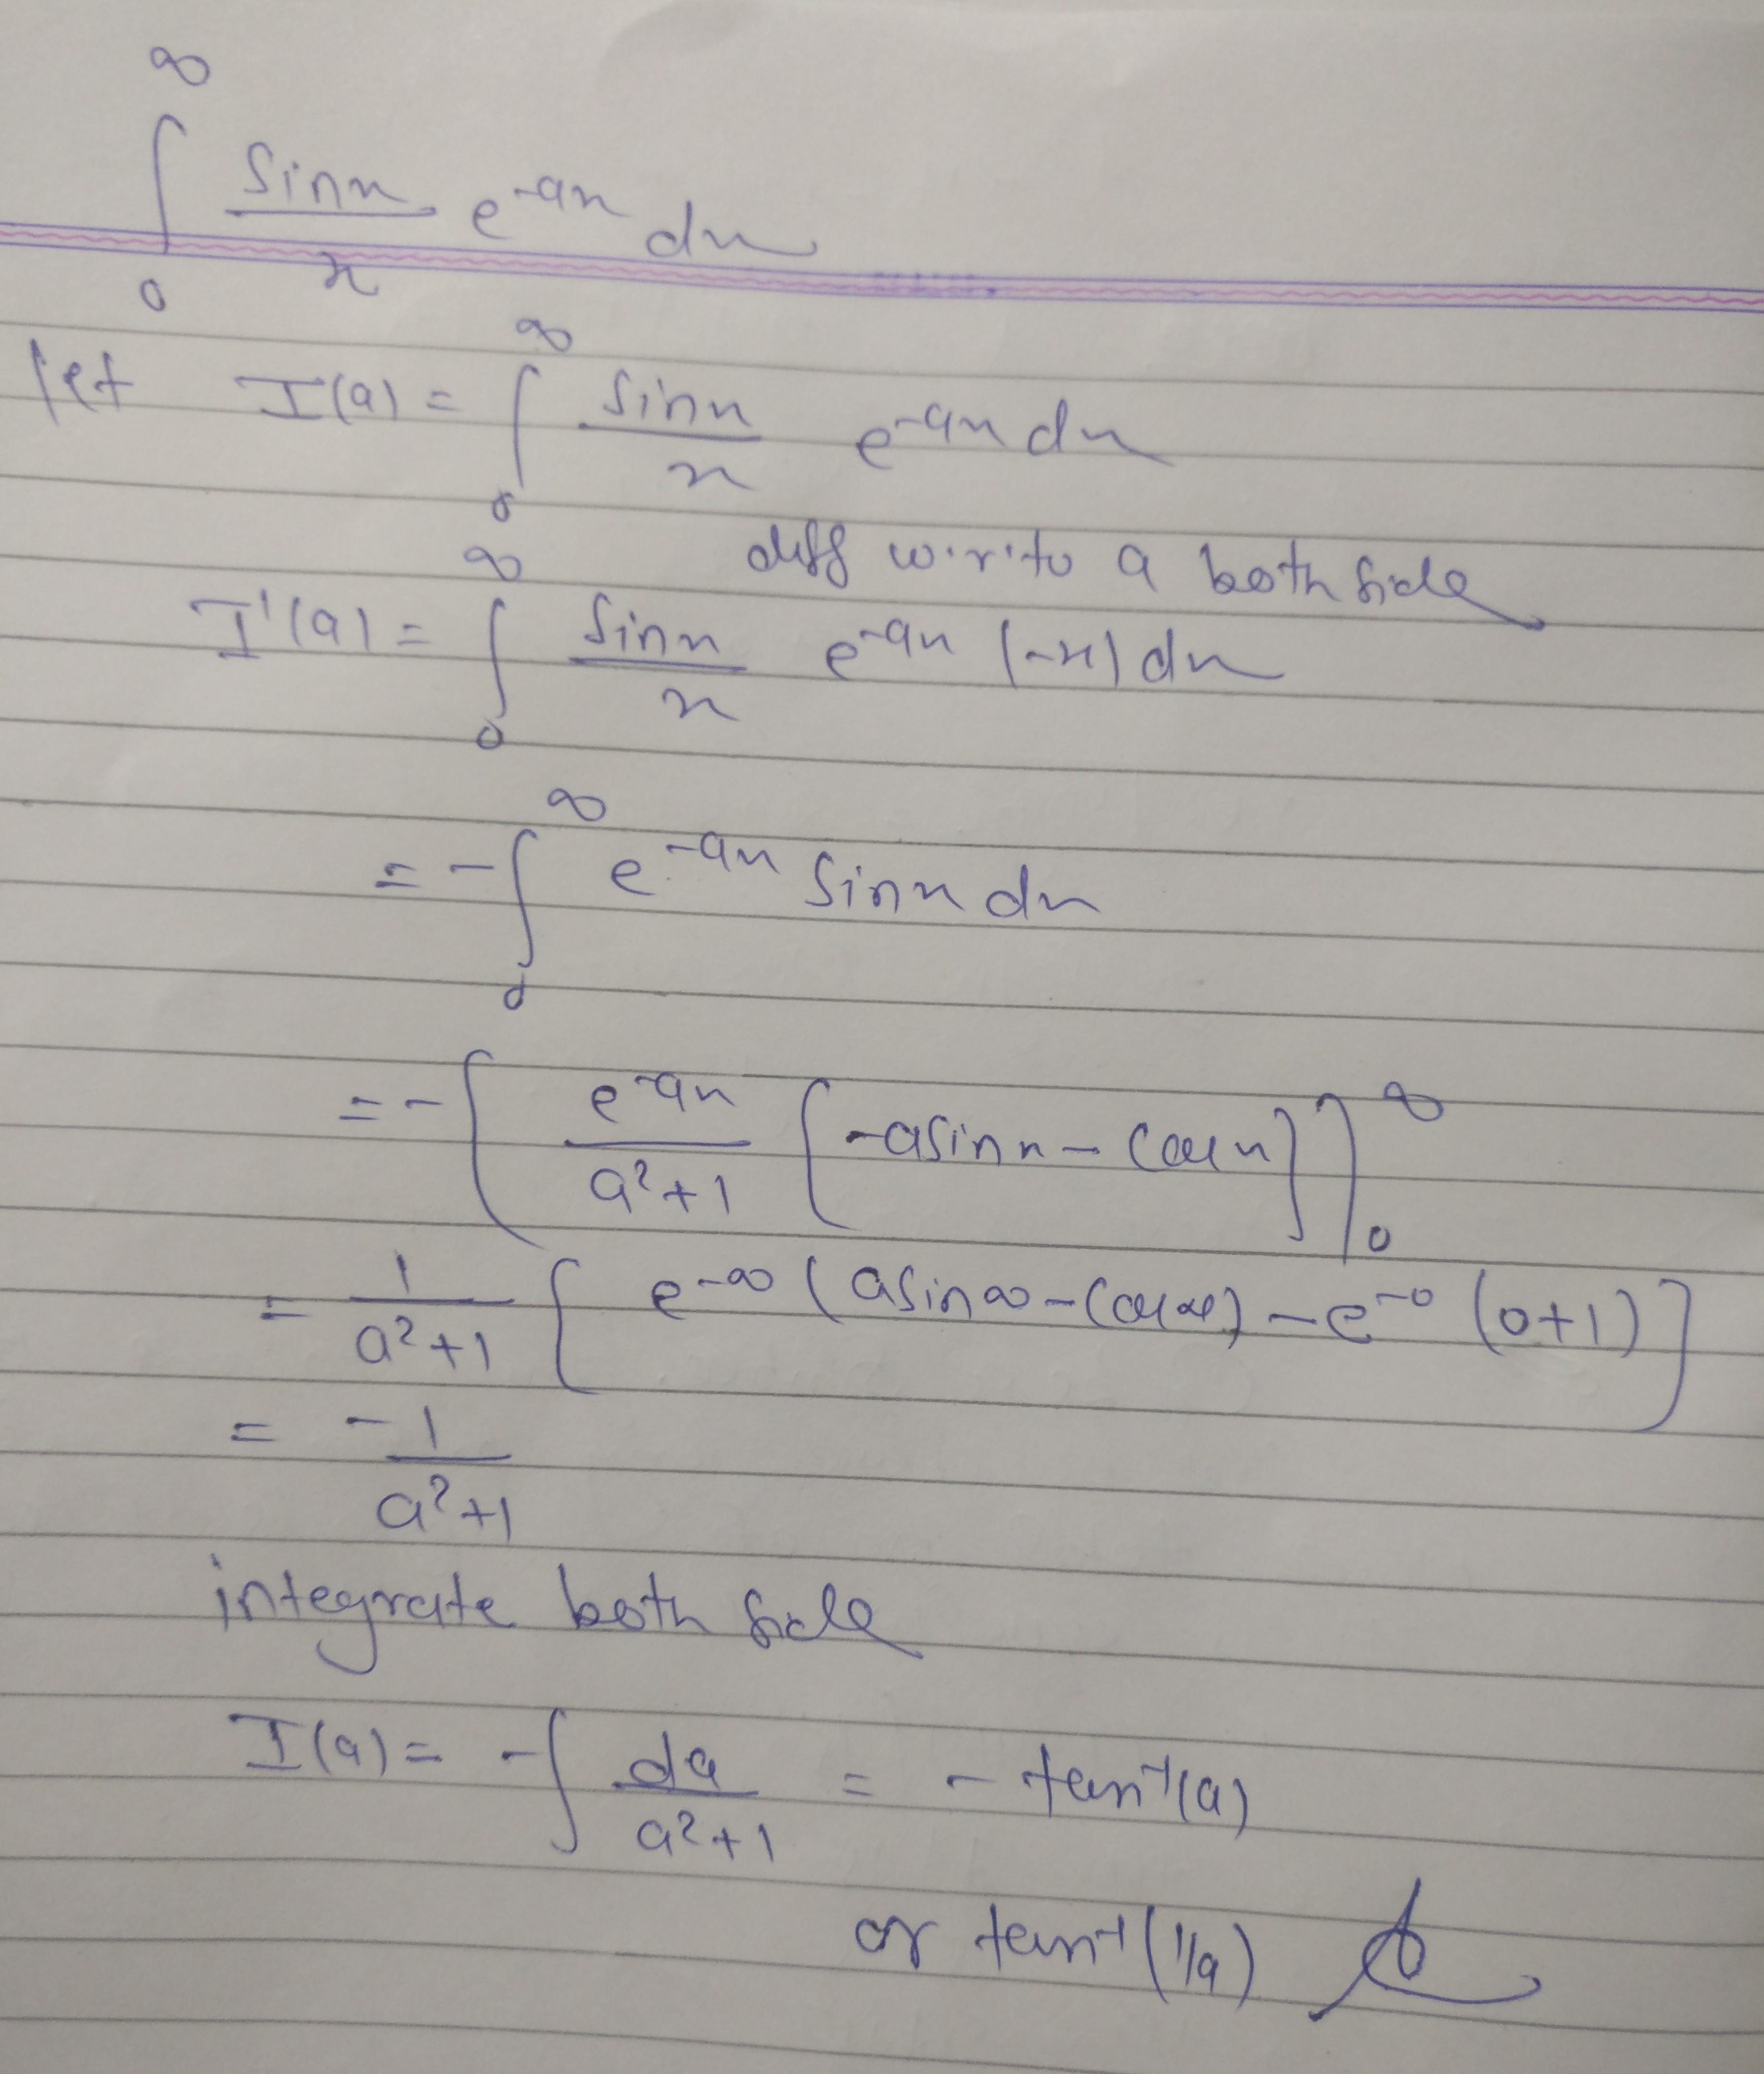 ∫₀^∞ sinx/x e^-ax dx
let I(a) = ∫₀^∞ sinx/x e^-ax dx
diff w.r.to a both side
I'(a) = ∫₀^∞ sinx/x e^-ax (-x) dx
= - ∫₀^∞ e^-ax sinx dx
= - [ e^-ax/a²+1 [-asinx - cosx] ]₀^∞
= 1/a²+1 [ e^-∞ (asin∞ - cos∞) - e^-0 (0+1) ]
= -1/a²+1
integrate both side
I(a) = - ∫ da/a²+1 = - tan⁻¹(a)
or tan⁻¹(1/a)